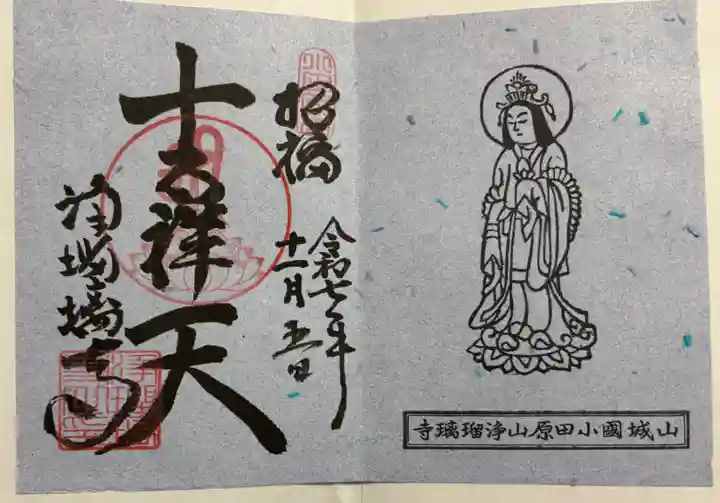 招福
令和七年
十一月五日
吉祥天
浄瑠璃寺
山城國小田原山浄瑠璃寺